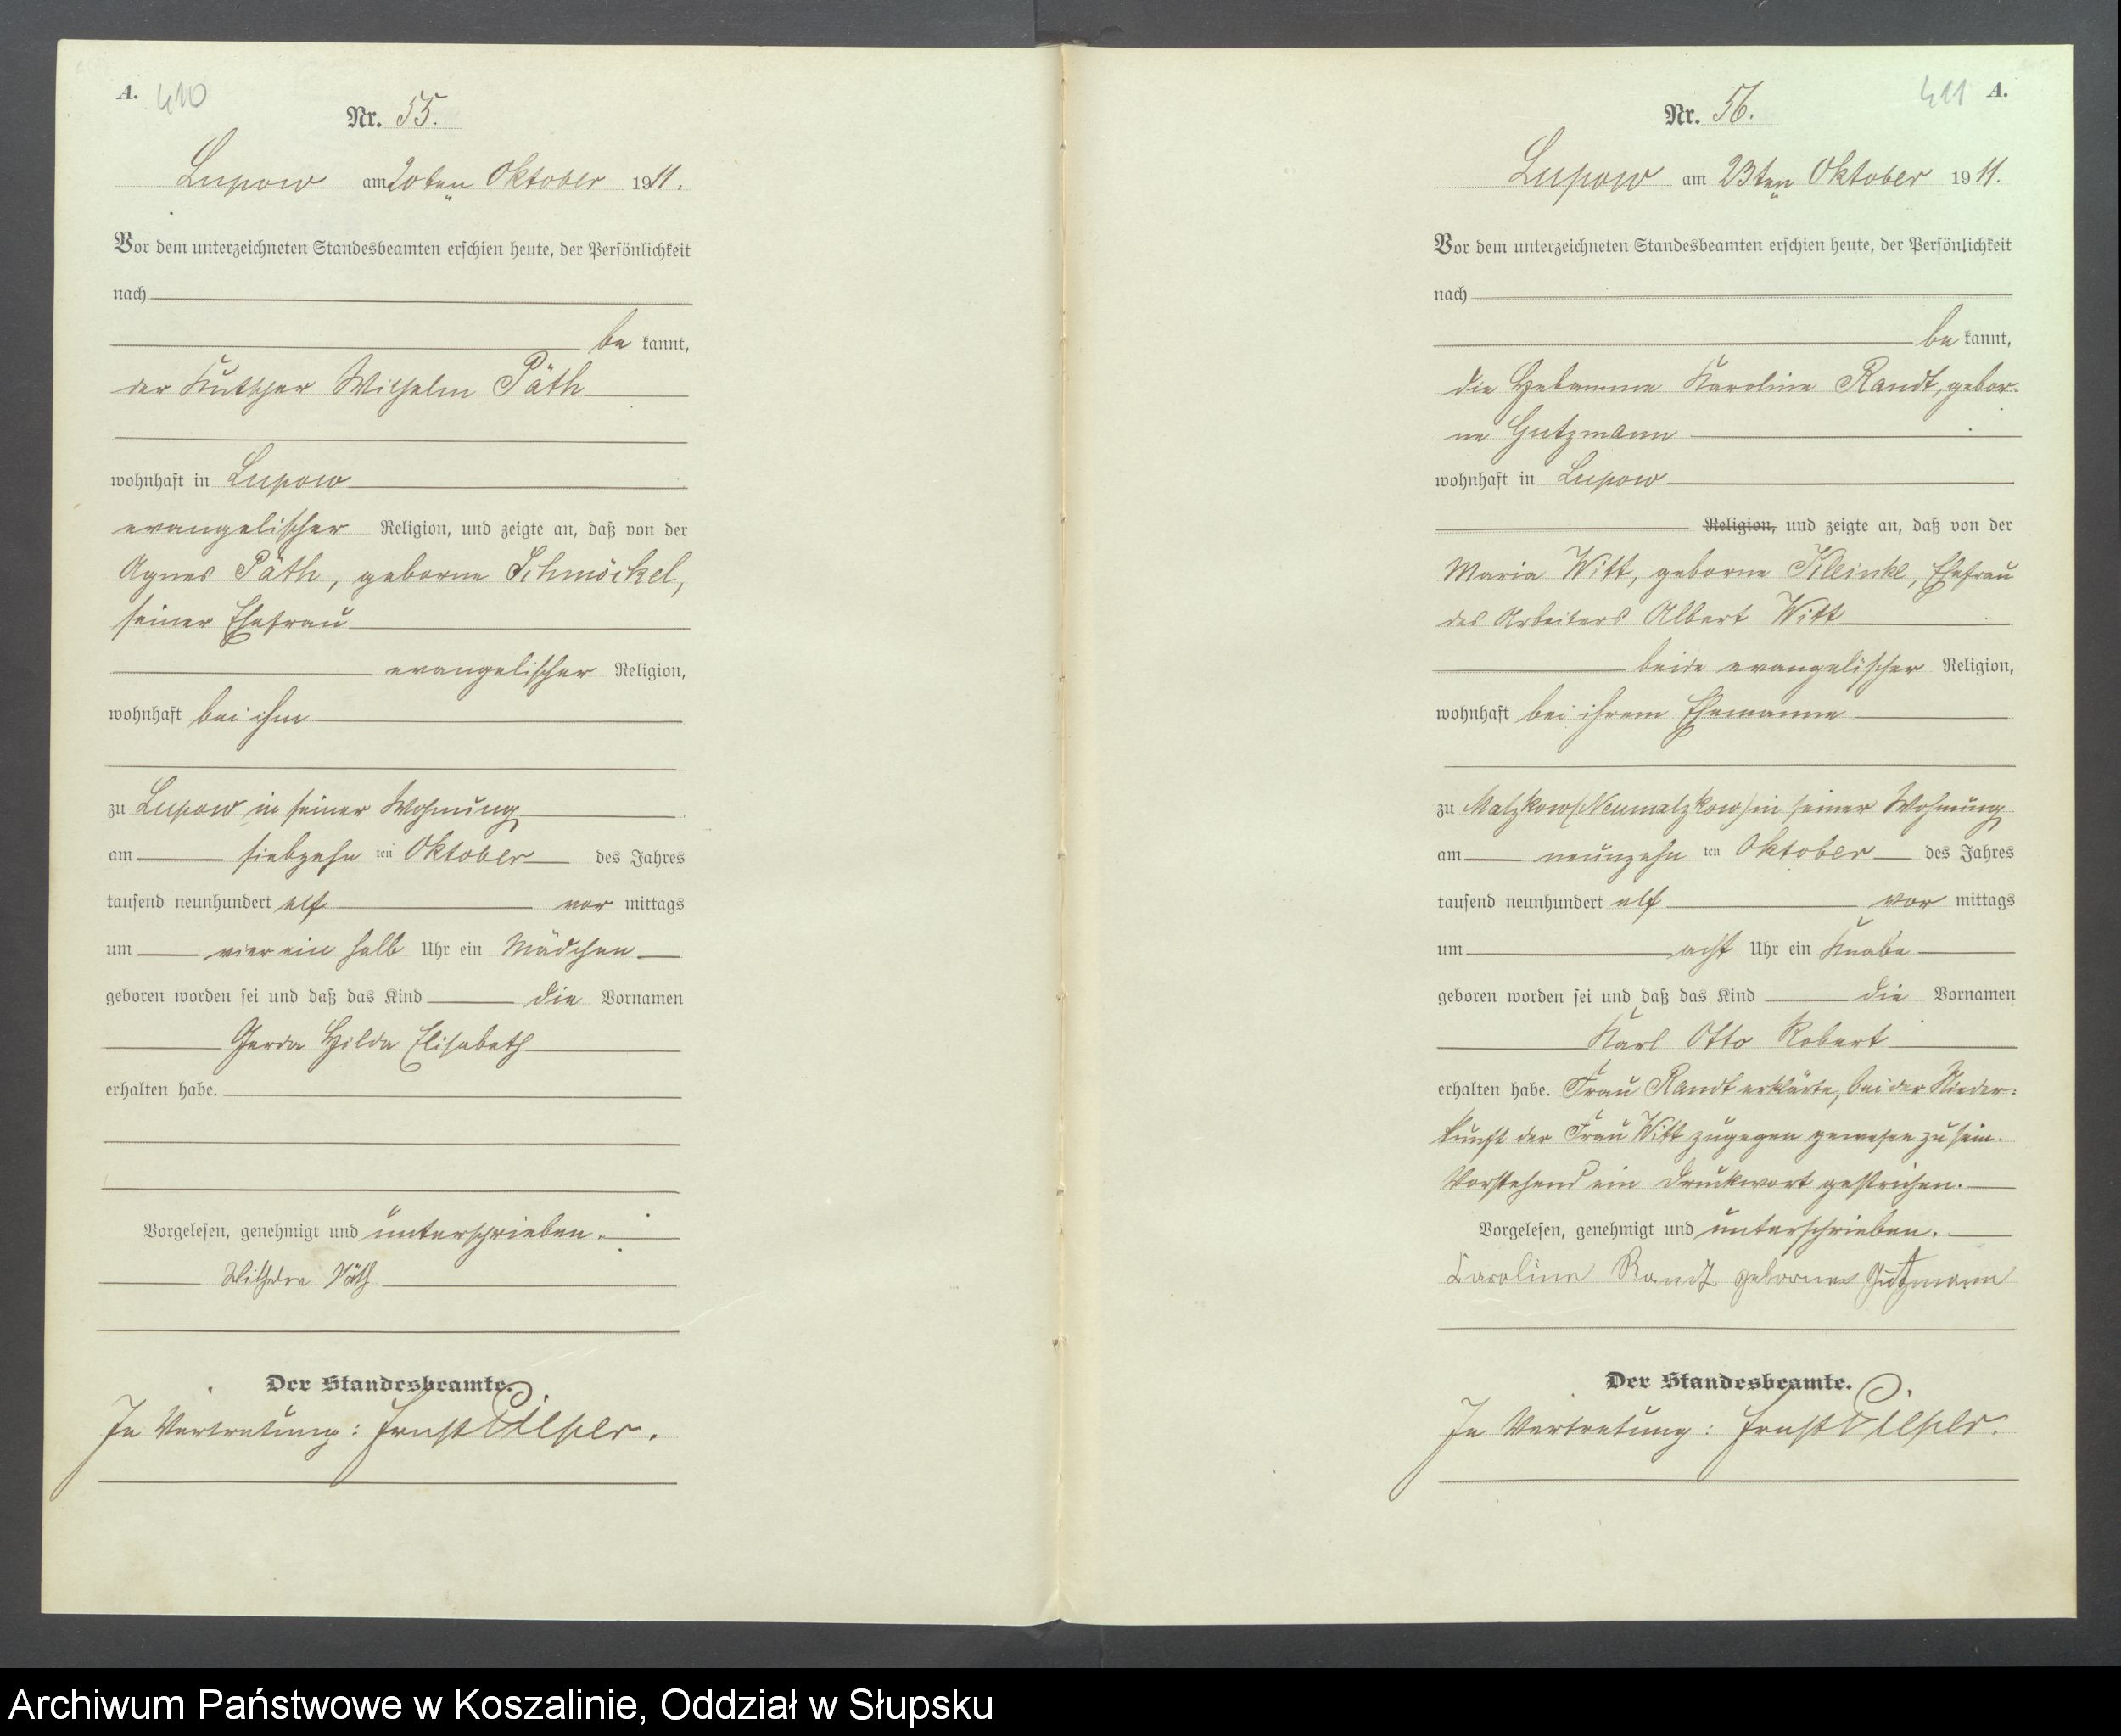 A. 410
Nr. 55.
Lupow am 20ten Oktober 1911.
Vor dem unterzeichneten Standesbeamten erschien heute, der Persönlichkeit
nach
be kannt,
der Kutscher Wilhelm Päth
wohnhaft in Lupow
evangelischer Religion, und zeigte an, daß von der
Agnes Päth, geborne Schmöckel,
seiner Ehefrau
evangelischer Religion,
wohnhaft bei ihm
zu Lupow in seiner Wohnung
am siebzehn ten Oktober des Jahres
tausend neunhundert elf vor mittags
um vier ein halb Uhr ein Mädchen
geboren worden sei und daß das Kind die Vornamen
Gerda Hilda Elisabeth
erhalten habe.
Vorgelesen, genehmigt und unterschrieben.
Wilhelm Päth
Der Standesbeamte.
In Vertretung: Ernst
411 A.
Nr. 56.
Lupow am 23ten Oktober 1911.
Vor dem unterzeichneten Standesbeamten erschien heute, der Persönlichkeit
nach
be kannt,
die Hebamme Karoline Randt, gebor-
ne Gutzmann
wohnhaft in Lupow
Religion, und zeigte an, daß von der
Maria Witt, geborne Kleinke, Ehefrau
des Arbeiters Albert Witt
beide evangelischer Religion,
wohnhaft bei ihrem Ehemanne
zu Malzkow (Neumalzkow) in seiner Wohnung
am neunzehn ten Oktober des Jahres
tausend neunhundert elf vor mittags
um acht Uhr ein Knabe
geboren worden sei und daß das Kind die Vornamen
Karl Otto Robert
erhalten habe. Frau Randt erklärte, bei der Nieder:
kunft der Frau Witt zugegen gewesen zu sein.
Vorstehend ein Druckwort gestrichen.
Vorgelesen, genehmigt und unterschrieben.
Caroline Randt geborne Gutzmann
Der Standesbeamte.
In Vertretung: Ernst
Archiwum Państwowe w Koszalinie, Oddział w Słupsku